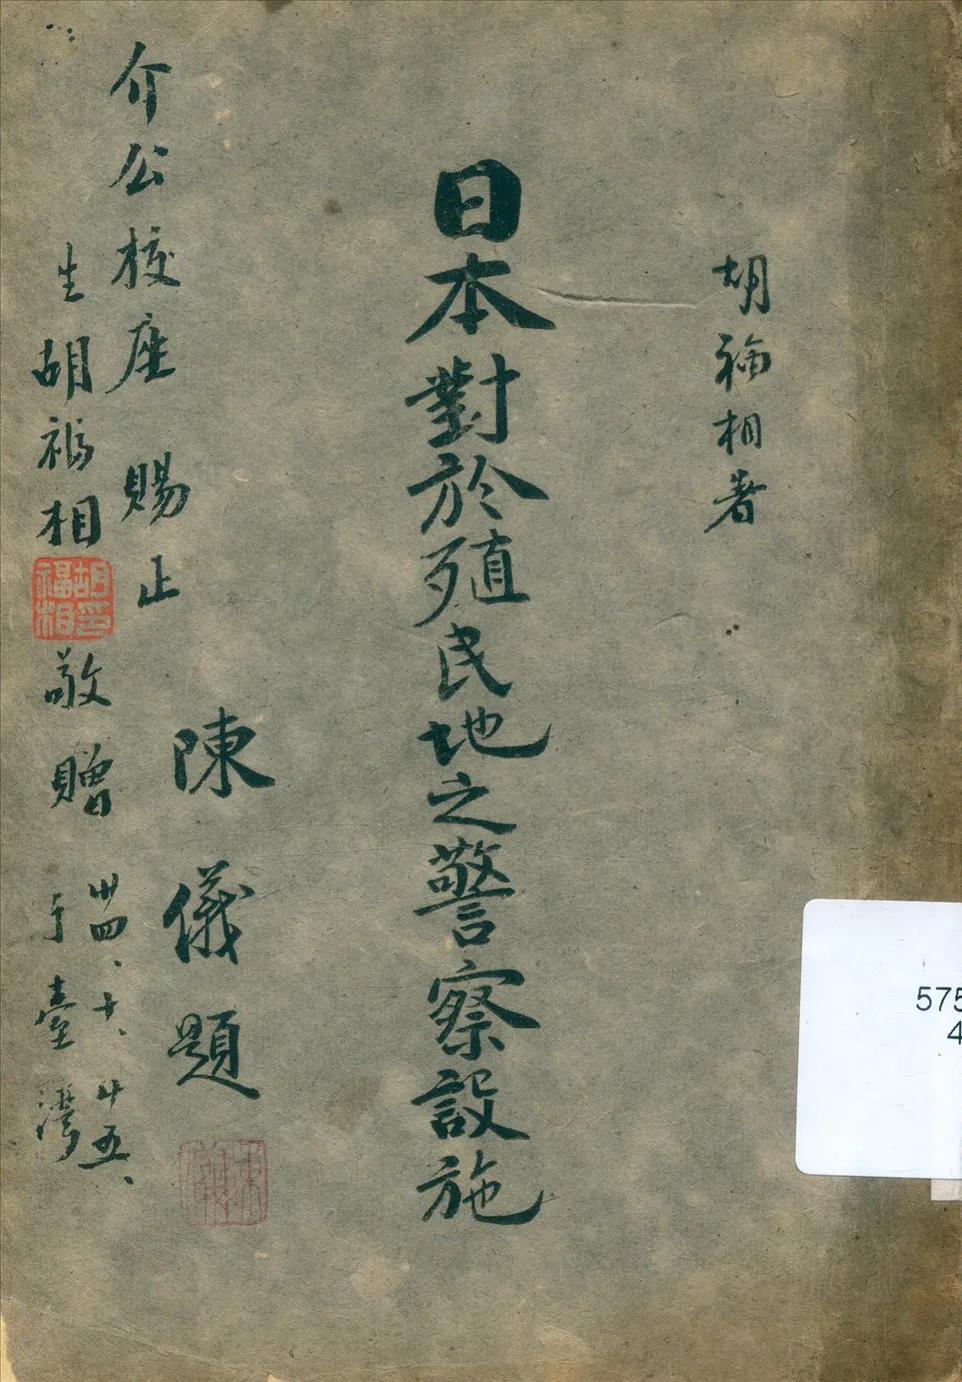 胡福相著
日本對於殖民地之警察設施
陳儀題
介公校座 賜正
生胡福相敬贈
卅四、十、廿五、
于臺灣
胡福相印
575
4